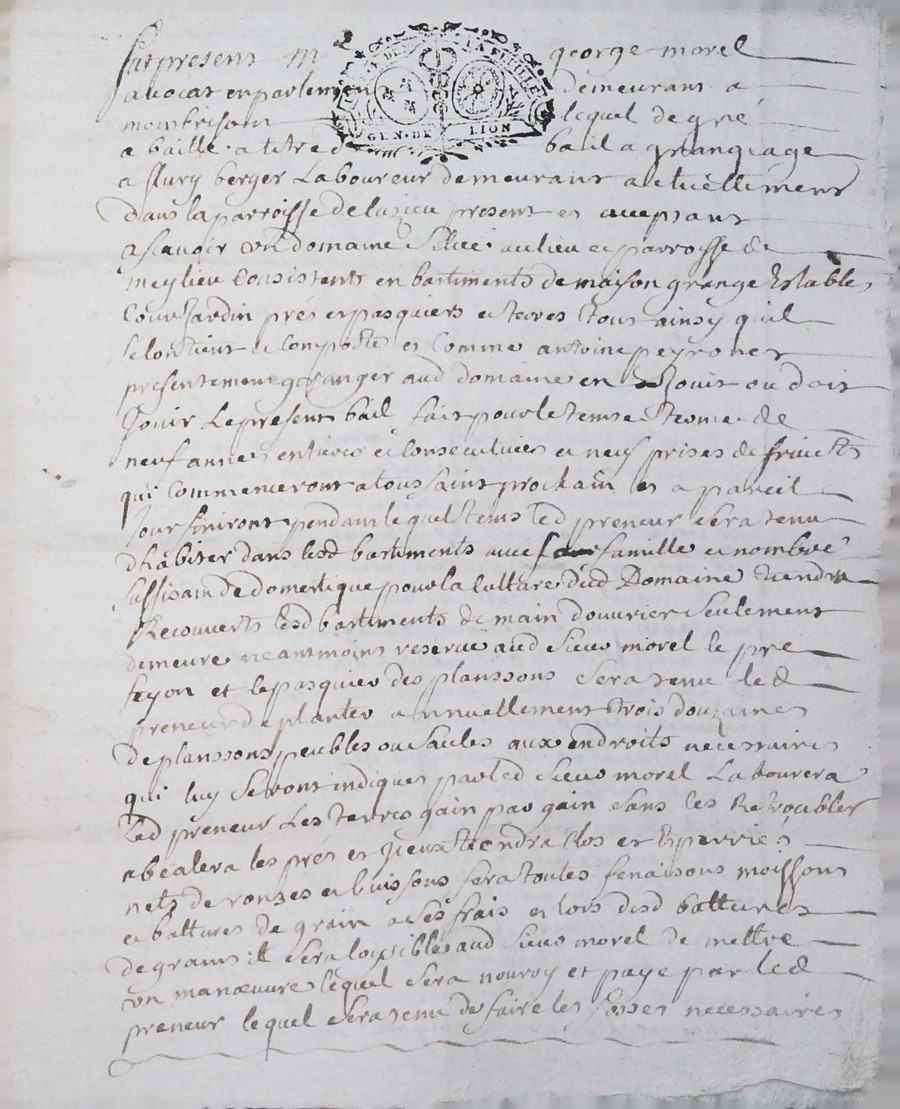 fut present Me george morel
LA FEUILLE
avocat en parlement demeurant a
montbrison lequel de gré
GEN. DE LION
a baille a titre de bail a grangeage
a flury berger Laboureur demeurant actuellement
dans la parroisse de luzieu present et acceptant
a scavoir un domaine scitué au lieu et parroisse de
meylieu Consistants en bastiments de maison grange Estables
Cour Jardin prés et pasquiers et terres Tout ainsy quil
se Contient et Comporte et Comme antoine peyronet
presentement granger aud domaine en Jouit ou doit
Jouir Le present bail fait pour le tems et terme de
neuf années entieres et Consecutives et neuf prises de fruicts
qui Commenceront a toussaint prochain et a pareil
Jour finiront pendant lequel tems led preneur sera tenu
dhabiter dans lesd bastiments avec sa famille et nombre
suffisant de domestique pour la Culture dud Domaine tiendra
Recouverts lesd bastiments de main douvrier seulement
demeure neantmoins reservé aud sieur morel le pré
feyon et le pasquier des planssons sera tenu led
preneur de planter annuellement trois douzaines
de planssons peubles ou saules aux endroits necessaires
qui luy seront indiques par led sieur morel Labourera
led preneur Les terres gain par gain sans les Retroubler
abealera les prés et yceux tiendra Clos et Esparriés
nets de ronzes et buissons fera toutes fenaisons moissons
et battures de grain a ses frais et lors desd battures
de grains il sera loysible aud sieur morel de mettre
un manœuvre lequel sera nourry et payé par led
preneur lequel sera tenu de faire les fosses necessaires